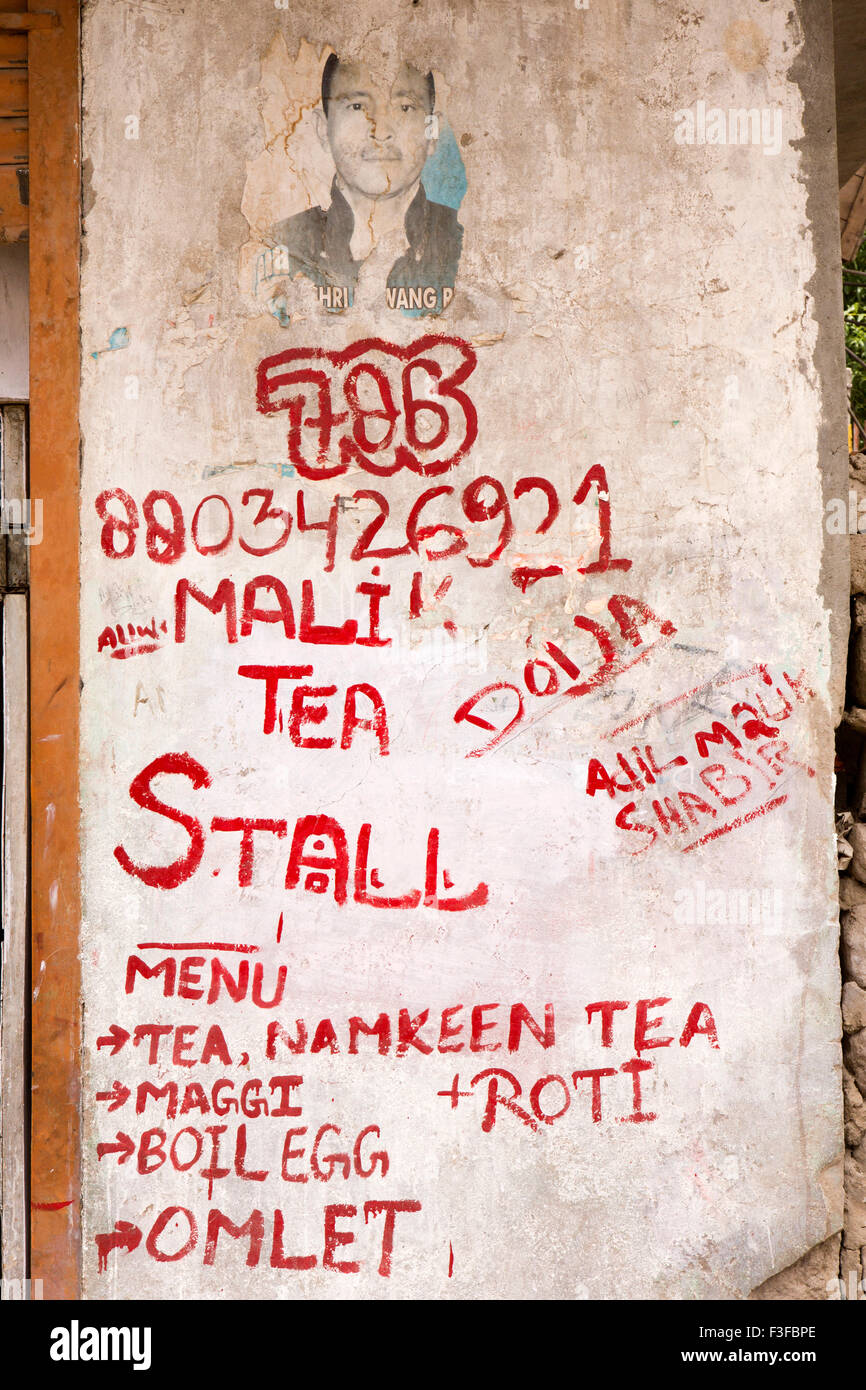 HRI WANG P
786
8803426921
MALIK
TEA
DOIJA
STALL
SHABIR
MENU
→TEA, NAMKEEN TEA
→MAGGI +ROTI
→BOIL EGG
→OMLET
alamy
Image ID: F3FBPE
www.alamy.com